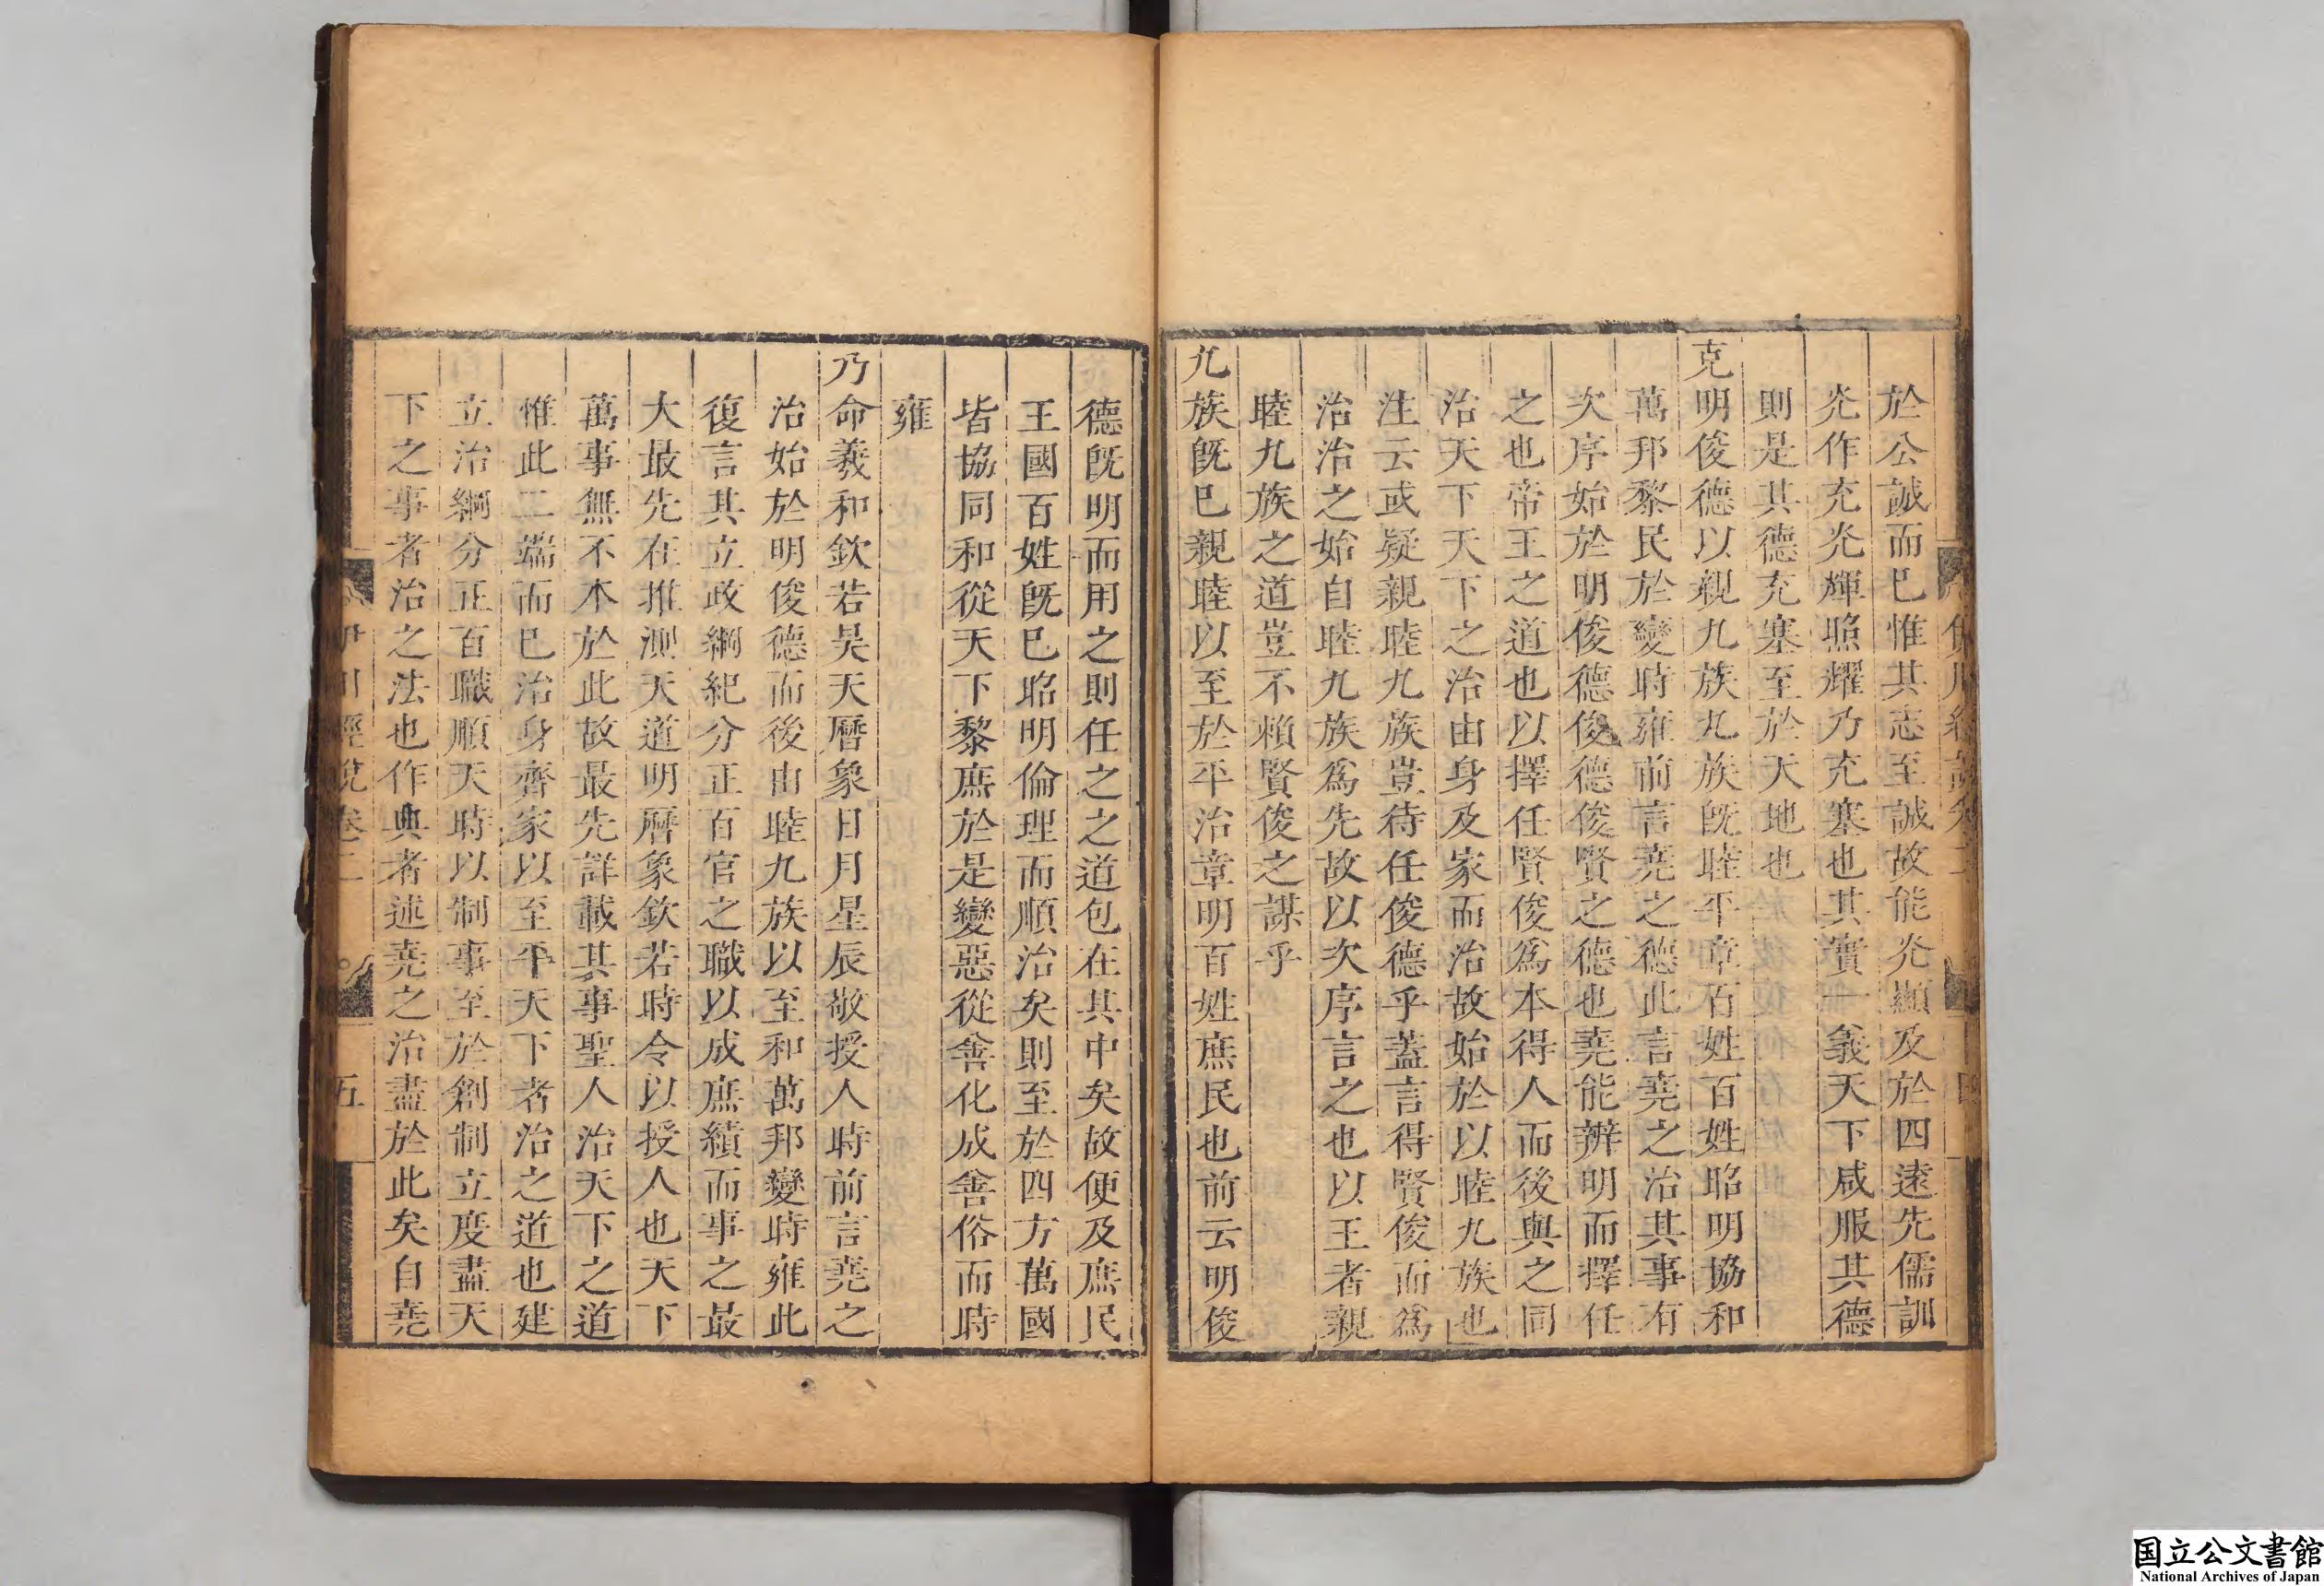 於公誠而已惟其志至誠故能光顯及於四遠先儒訓
光作充光輝照耀乃充塞也其實一義天下咸服其德
則是其德充塞至於天地也
克明俊德以親九族九族既睦平章百姓百姓昭明協和
萬邦黎民於變時雍前言堯之德此言堯之治其事有
次序始於明俊德俊德俊賢之德也堯能辨明而擇任
之也帝王之道也以擇任賢俊為本得人而後與之同
治天下天下之治由身及家而治故始於以睦九族也
注云或疑親睦九族豈待任俊德乎蓋言得賢俊而為
治治之始自睦九族為先故以次序言之也以王者親
睦九族之道豈不賴賢俊之謀乎
九族既已親睦以至於平治章明百姓庶民也前云明俊
德既明而用之則任之之道包在其中矣故便及庶民
王國百姓既已昭明倫理而順治矣則至於四方萬國
皆協同和從天下黎庶於是變惡從善化成善俗而時
雍
乃命羲和欽若昊天曆象日月星辰敬授人時前言堯之
治始於明俊德而後由睦九族以至和萬邦變時雍此
復言其立政綱紀分正百官之職以成庶績而事之最
大最先在推測天道明曆象欽若時令以授人也天下
萬事無不本於此故最先詳載其事聖人治天下之道
惟此二端而已治身齊家以至平天下者治之道也建
立治綱分正百職順天時以制事至於創制立度盡天
下之事者治之法也作典者述堯之治盡於此矣自堯
伊川經說卷二
五
国立公文書館
National Archives of Japan